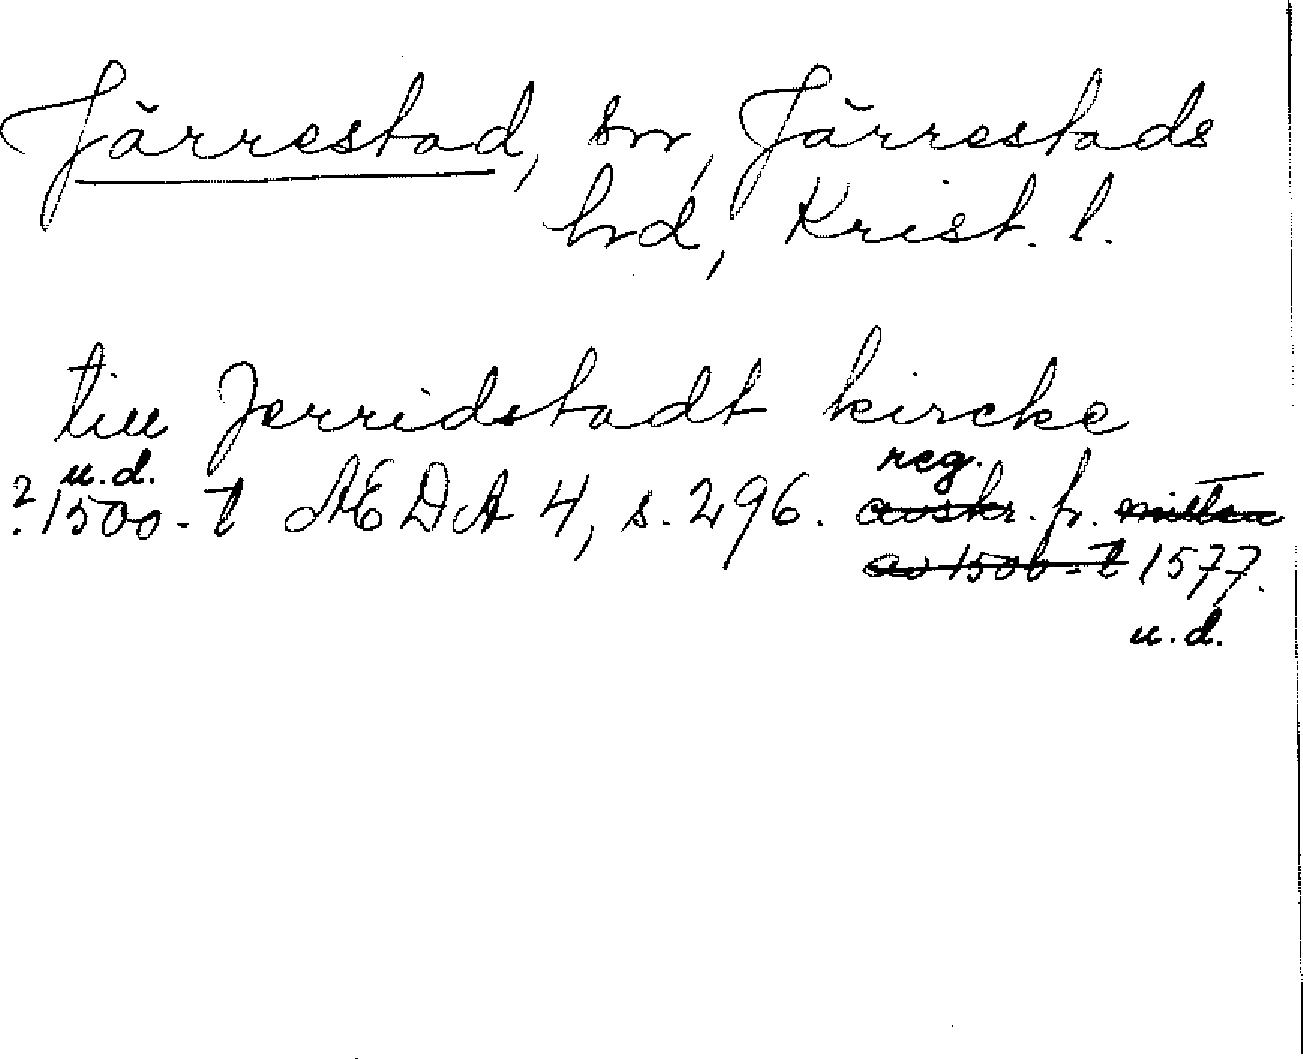 Järrestad, sn, Järrestads
hd, Krist. l.
till Jerridstadt kircke
u.d. reg.
? 1500-t AEDA 4, s. 296. avskr. fr. mitten
av 1500-t 1577.
u.d.